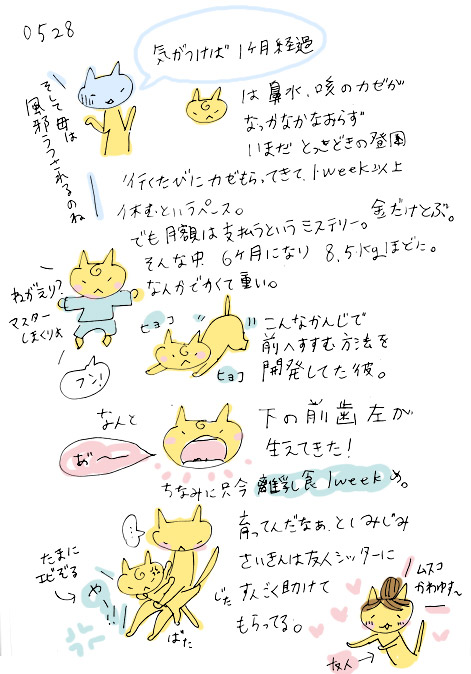 0528
気がつけば1ヶ月経過
そして母は
風邪うつされるのね
は鼻水、咳のカゼが
なっかなかなおらず
いまだ とっきどきの登園
行くたびにカゼもらってきて、1week以上
休むというペース。
でも月額は支払うというミステリー。金だけとぶ。
そんな中 6ヶ月になり 8.5kgほどに。
なんかでかくて重い。
ねがえり?
マスター
しまくりよ
フン!
ヒョコ
ヒョコ
こんなかんじで
前へすすむ方法を
開発してた彼。
なんと
あ゛〜
下の前歯左が
生えてきた!
ちなみに只今 離乳食1weekめ。
たまに
エビぞる
や〜!!
じた
ばた
育ってんだなぁ、としみじみ
さいきんは友人シッターに
すんごく助けて
もらってる。
ムスコ
かわゆす〜
友人